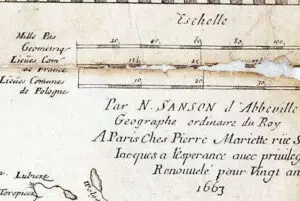 Eschelle
Mille Pas
Geometriq
20. 40. 60. 80. 100.
Lieües Com^es
de France
Lieües Comunes
de Pologne
Par N. SANSON d'Abbeville
Geographe ordinaire du Roy
A Paris Ches Pierre Mariette rüe S
Iacques a l'esperance avec privileg
Renouuelé pour Vingt an
1663
Lubiesz